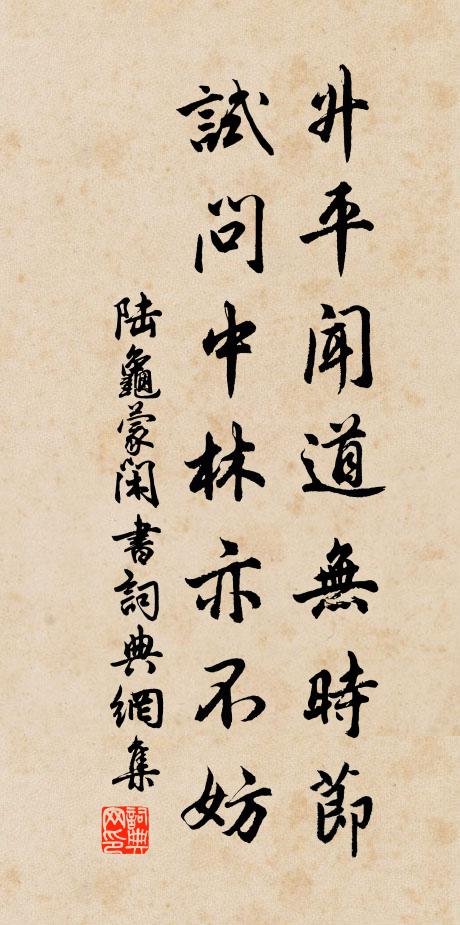 升平聞道無時節
試問中林亦不妨
陸龜蒙閑書詞典網集
詞典網印